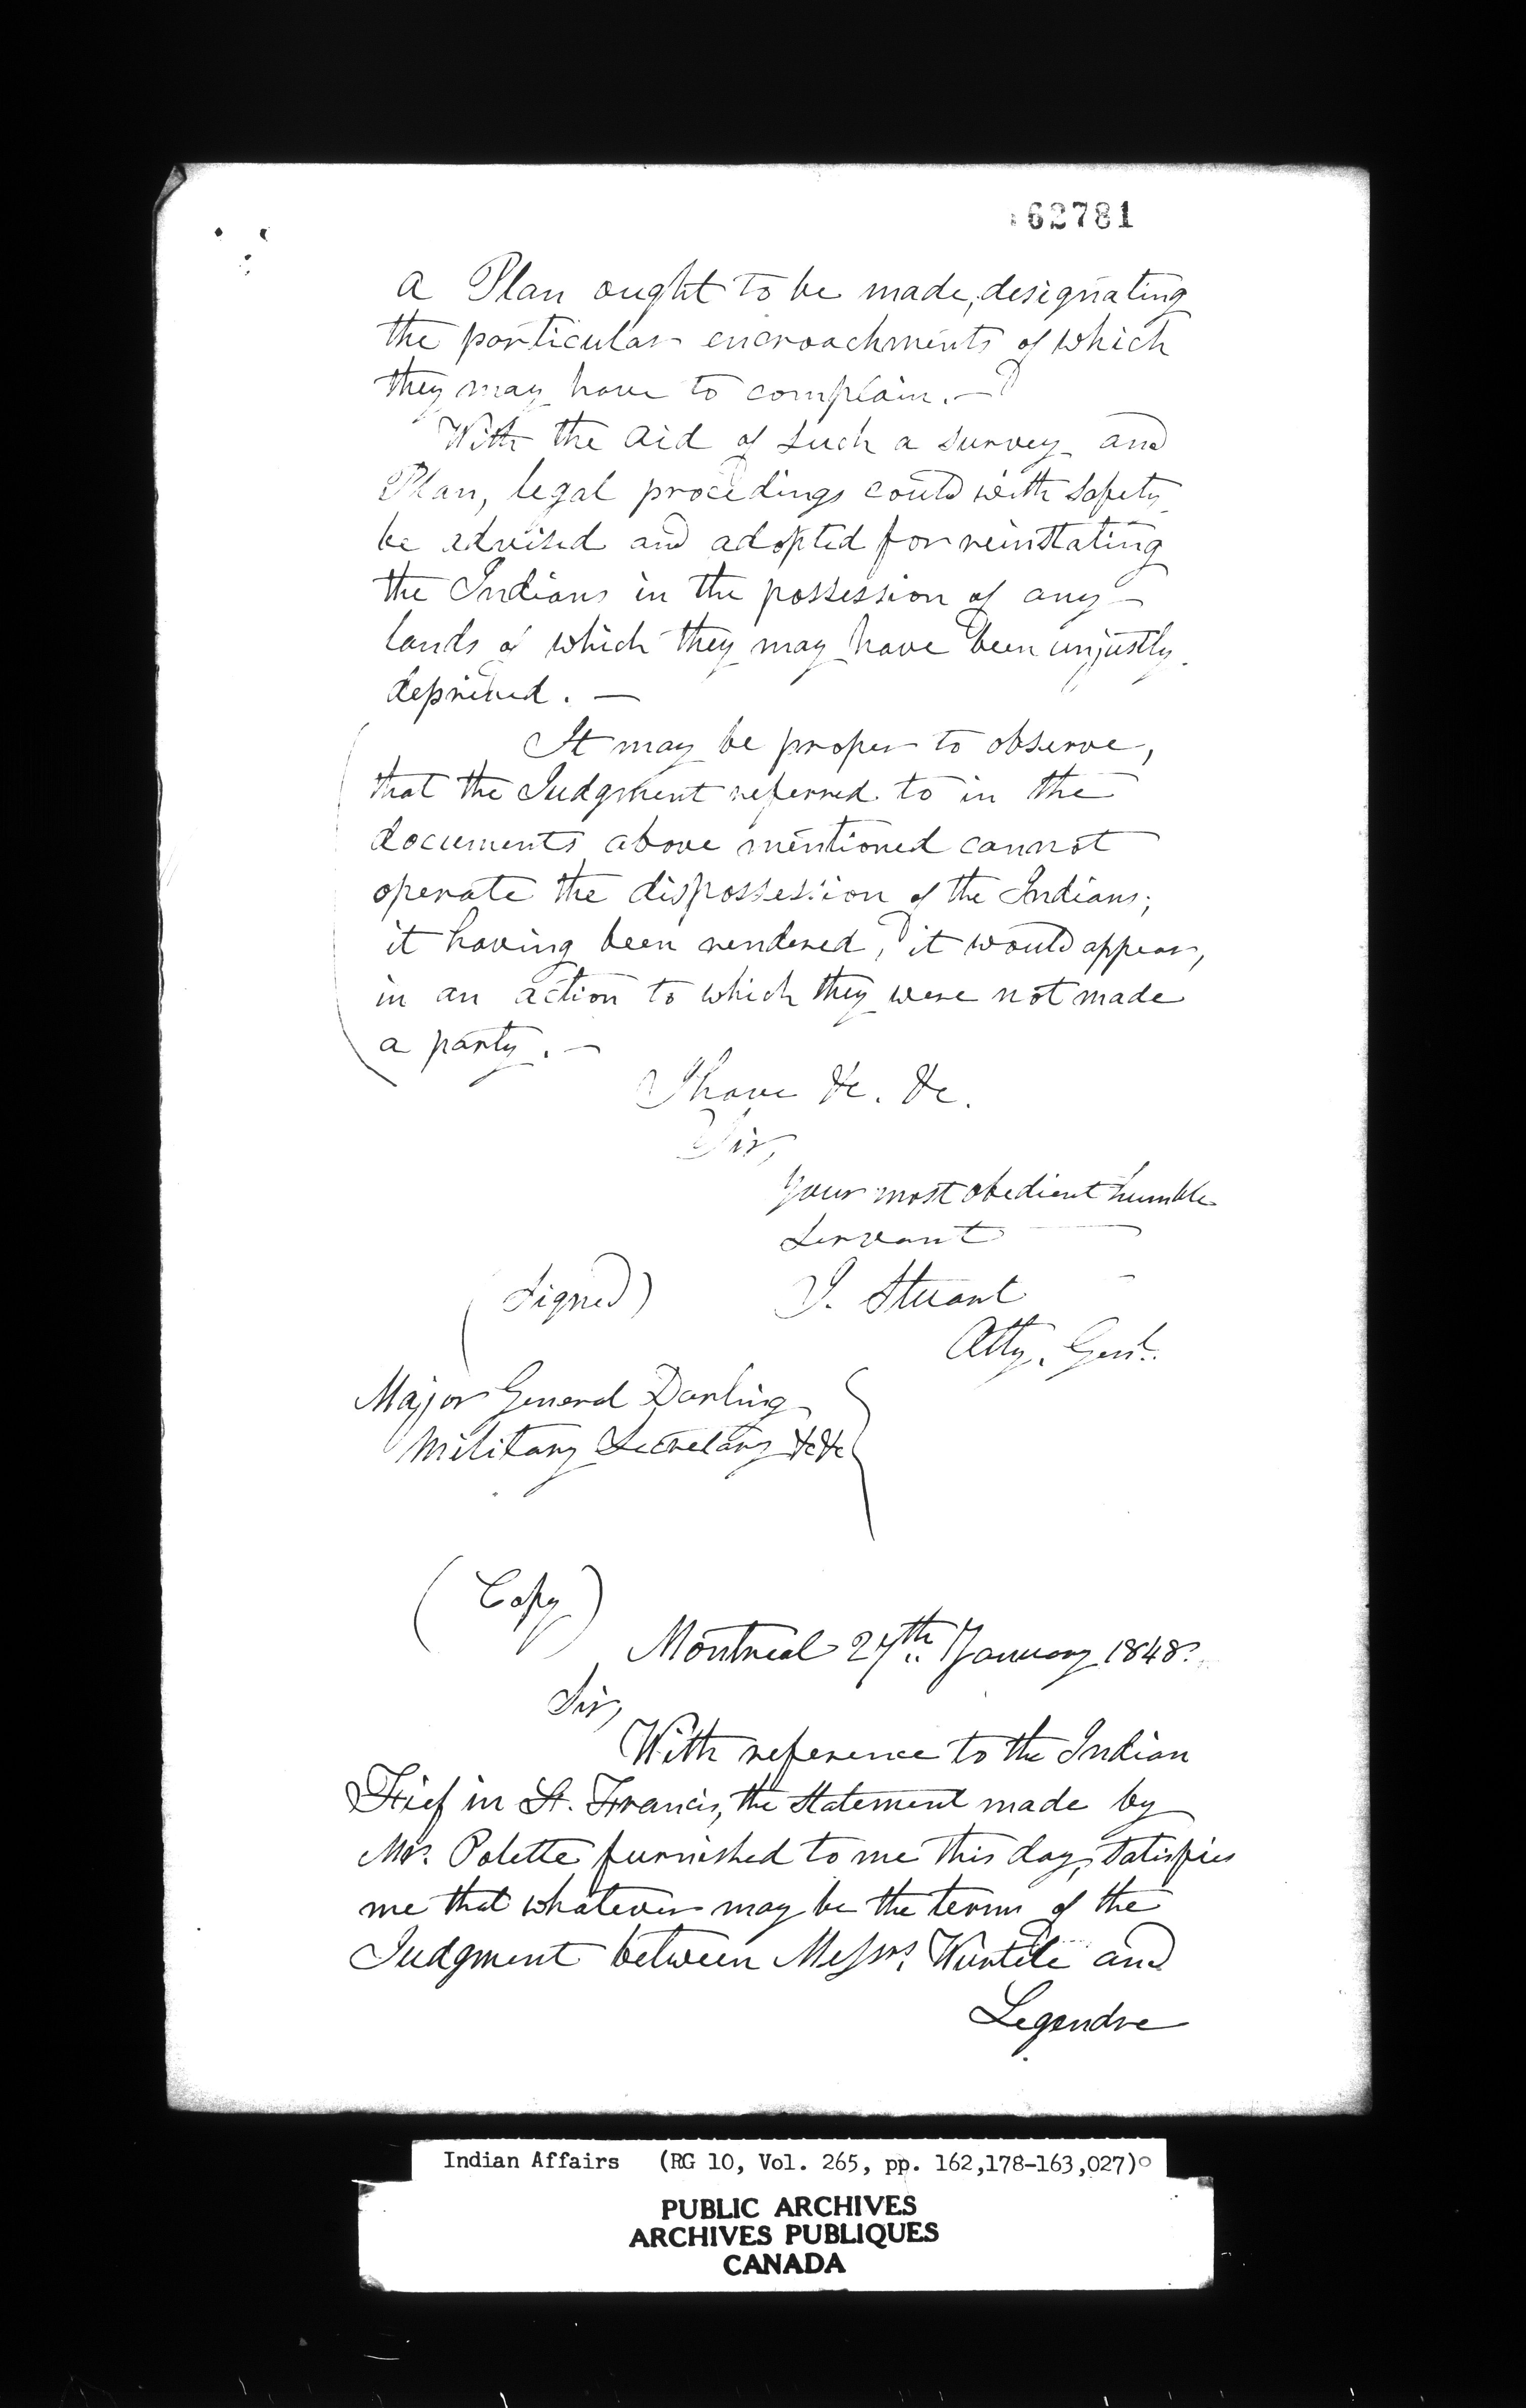 162781
a Plan ought to be made, designating
the particular encroachments of which
they may have to complain. —
With the aid of such a survey and
Plan, legal procedings could with safety
be advised and adopted for reinstating
the Indians in the possession of any
lands of which they may have been unjustly
deprived. —
It may be proper to observe,
that the Judgment referred to in the
documents above mentioned cannot
operate the dispossession of the Indians;
it having been rendered, it would appear,
in an action to which they were not made
a party. —
I have &c. &c.
Sir,
Your most obedient humble
Servant
(Signed) J. Stuart
Atty. Genl.
Major General Darling
Military Secretary &c &c
(Copy)
Montreal 27th January 1848.
Sir,
With reference to the Indian
Fief in St. Francis, the Statement made by
Mr. Polette furnished to me this day, satisfies
me that whatever may be the terms of the
Judgment between Messrs. Wurtele and
Legendre
Indian Affairs (RG 10, Vol. 265, pp. 162,178-163,027)
PUBLIC ARCHIVES
ARCHIVES PUBLIQUES
CANADA